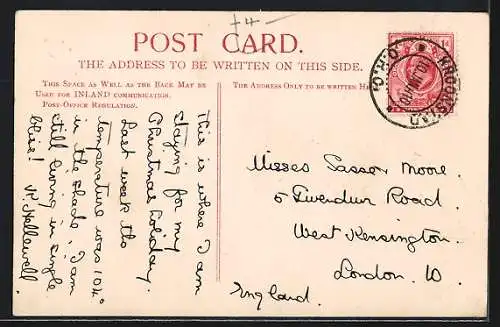 +4-
POST CARD.
THE ADDRESS TO BE WRITTEN ON THIS SIDE.
THIS SPACE AS WELL AS THE BACK MAY BE
USED FOR INLAND COMMUNICATION.
POST-OFFICE REGULATION.
THE ADDRESS ONLY TO BE WRITTEN HE
This is where I am
staying for my
Christmas holiday
Last week the
temperature was 104°
in the shade, I am
still living in single
bliss! K. Hellewell.
Misses Sasson Moore.
5 Tiverdun Road.
West Kensington.
London. W.
England.
KROONSTAD
O.R.C.